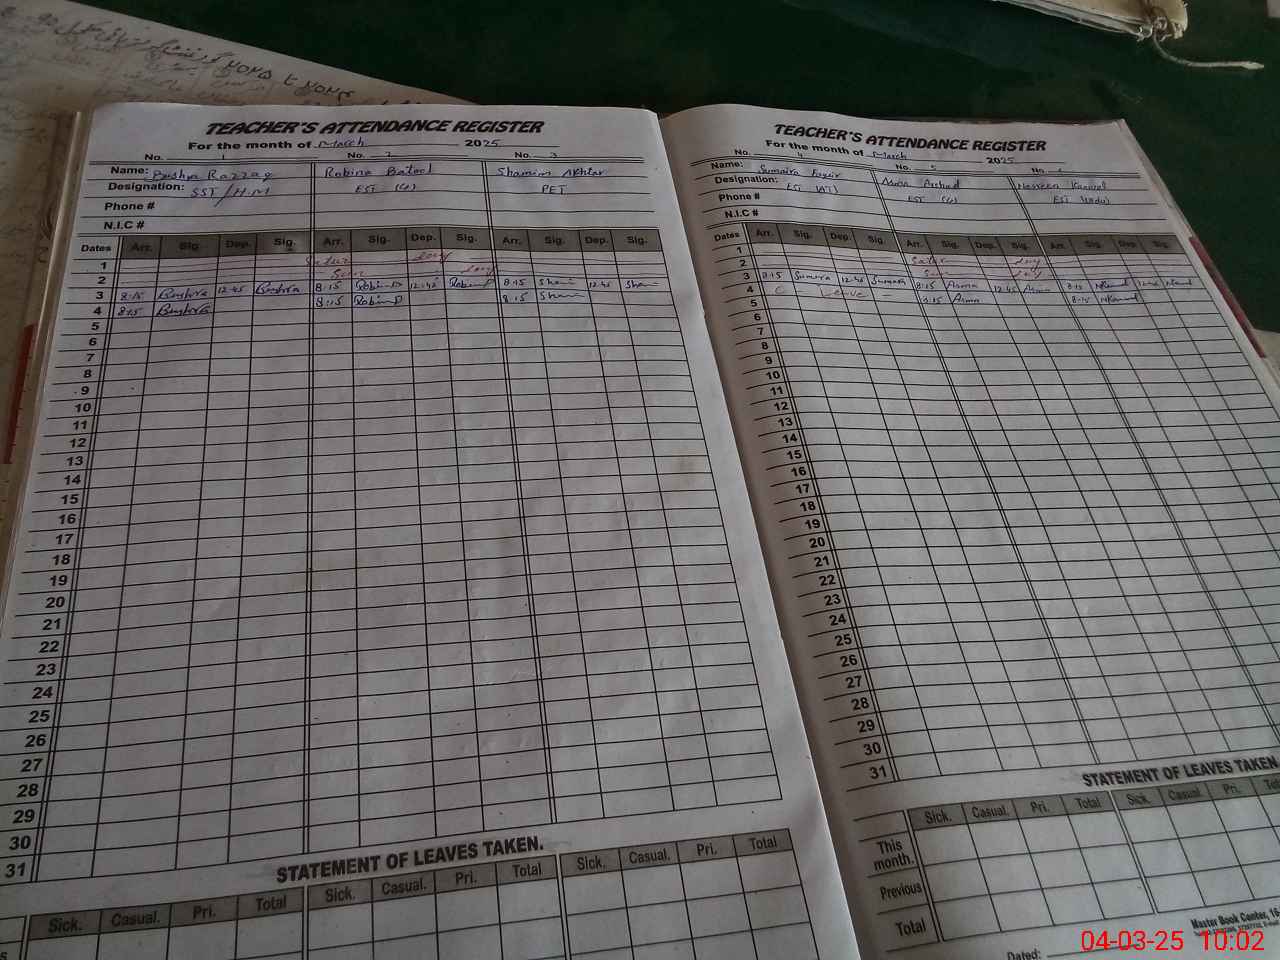 TEACHER'S ATTENDANCE REGISTER
For the month of March 2025
No. 1 No. 2 No. 3
Name: Bushra Razzaq Robina Batool Shamim Akhtar
Designation: SST/H.M EST PET
Phone #
N.I.C #
Dates Arr. Sig. Dep. Sig. Arr. Sig. Dep. Sig. Arr. Sig. Dep. Sig.
1 Satur day
2 Sun day
3 8:15 Bushra 12:45 Bushra 8:15 Robina 12:45 Robina 8:15 Sham 12:45 Sham
4 8:15 Bushra 8:15 Robina 8:15 Sham
5
6
7
8
9
10
11
12
13
14
15
16
17
18
19
20
21
22
23
24
25
26
27
28
29
30
31
STATEMENT OF LEAVES TAKEN.
Sick. Casual. Pri. Total Sick. Casual. Pri. Total Sick. Casual. Pri. Total
TEACHER'S ATTENDANCE REGISTER
For the month of March 2025
No. 4 No. 5 No. 6
Name: Sumaira Asma Arshad Kanwal
Designation: EST (AT) EST EST Urdu)
Phone #
N.I.C #
Dates Arr. Sig. Dep. Sig. Arr. Sig. Dep. Sig. Arr. Sig. Dep. Sig.
1 Satur day
2 Sun day
3 8:15 Sumaira 12:45 Sumaira 8:15 Asma 12:45 Asma 8:15 NKanwal 12:45 NKanwal
4 C - Leave - 8:15 Asma 8:15 NKanwal
5
6
7
8
9
10
11
12
13
14
15
16
17
18
19
20
21
22
23
24
25
26
27
28
29
30
31
STATEMENT OF LEAVES TAKEN
Sick. Casual. Pri. Total Sick. Casual Pri.
This month.
Previous
Total
Master Book Center, 16
Dated:
04-03-25 10:02